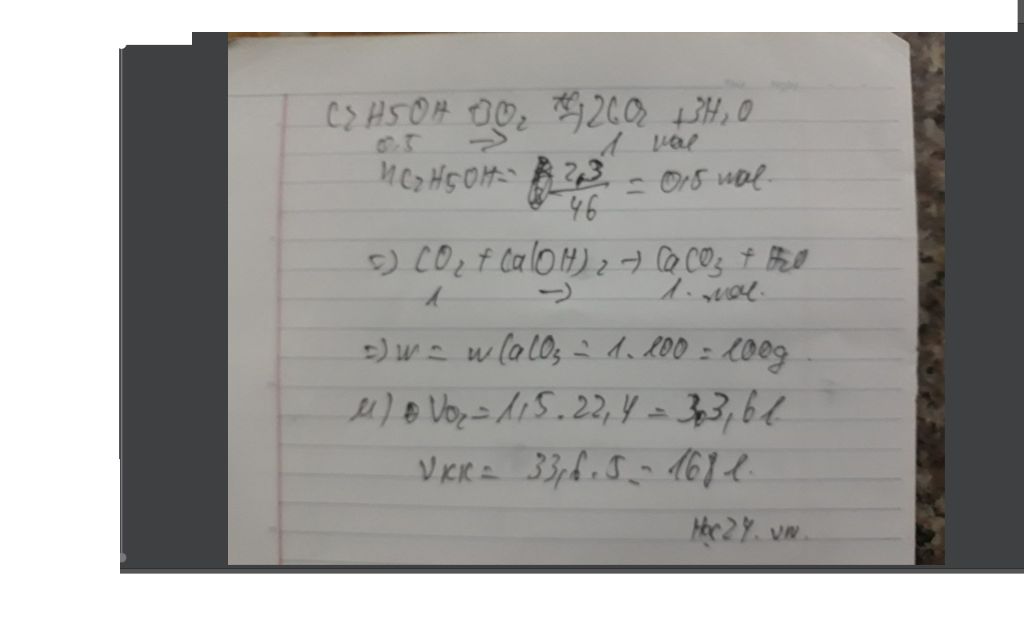 C2H5OH + 3O2 →t° 2CO2 + 3H2O
0,5 → 1 mol
nC2H5OH = 2,3/46 = 0,5 mol.
=) CO2 + Ca(OH)2 → CaCO3 + H2O
1 → 1. mol.
=) m = mCaCO3 = 1.100 = 100g.
VO2 = 1,5.22,4 = 33,6 l
VKK = 33,6.5 = 168 l.
Học24.vn.